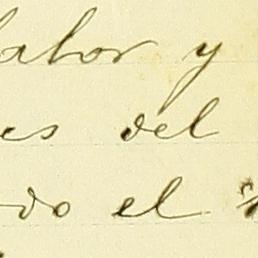 labor y
es del
do el